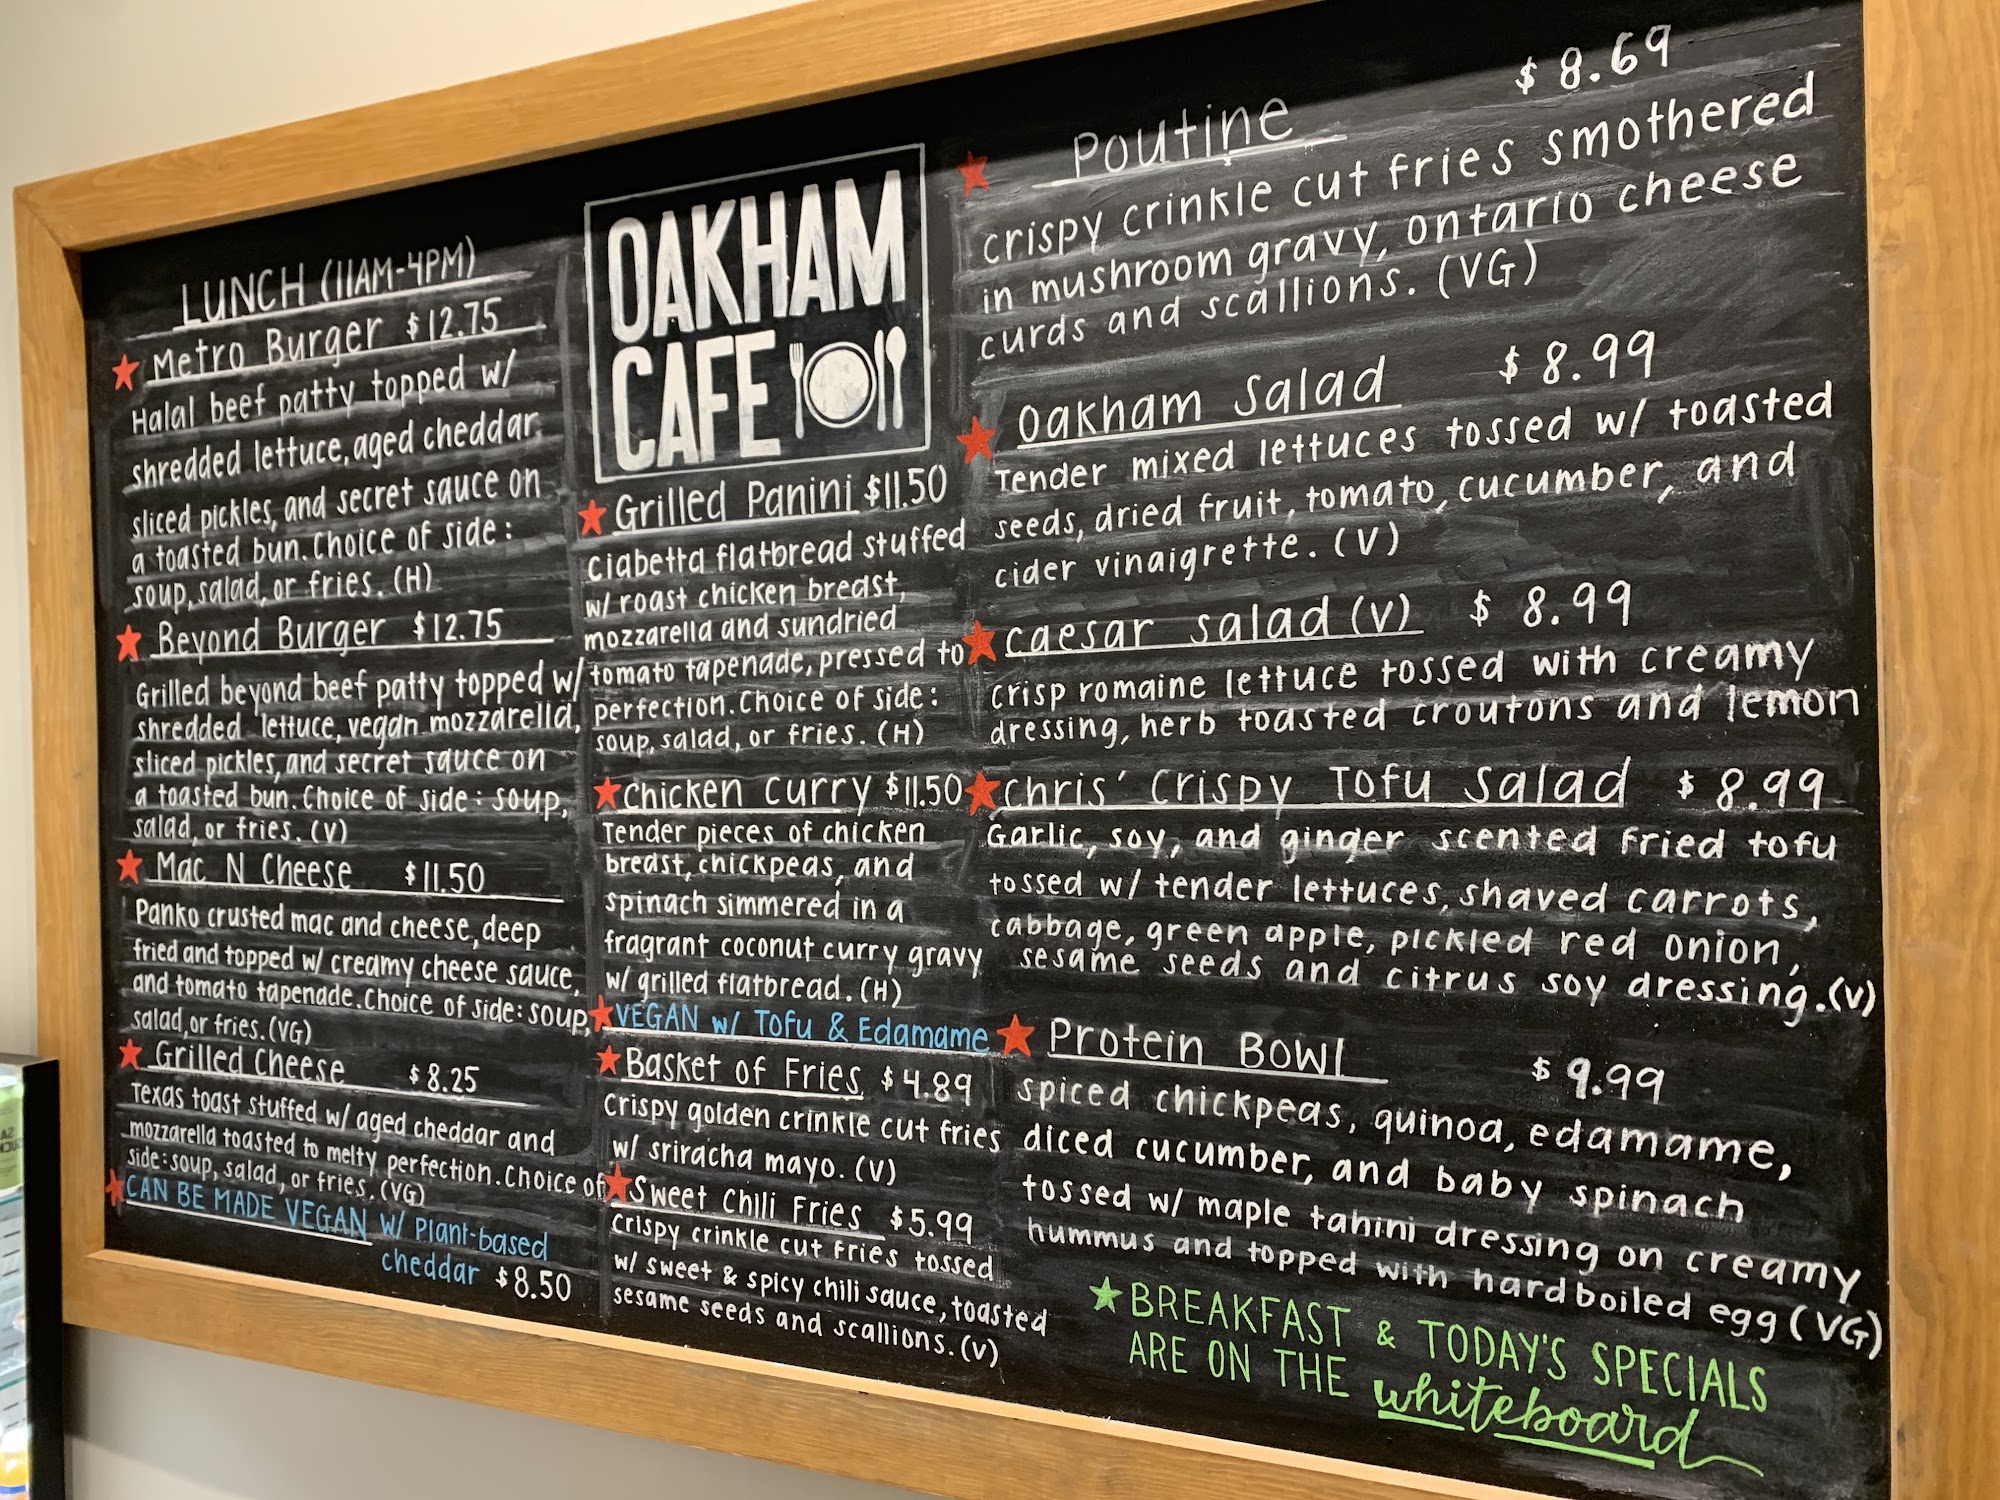 LUNCH (11AM-4PM)
Metro Burger $12.75
Halal beef patty topped w/
shredded lettuce, aged cheddar,
sliced pickles, and secret sauce on
a toasted bun. Choice of side:
soup, salad, or fries. (H)
Beyond Burger $12.75
Grilled beyond beef patty topped w/
shredded lettuce, vegan mozzarella,
sliced pickles, and secret sauce on
a toasted bun. Choice of side: soup,
salad, or fries. (V)
Mac N Cheese $11.50
Panko crusted mac and cheese, deep
fried and topped w/ creamy cheese sauce,
and tomato tapenade. Choice of side: soup,
salad, or fries. (VG)
Grilled Cheese $8.25
Texas toast stuffed w/ aged cheddar and
mozzarella toasted to melty perfection. Choice of
side: soup, salad, or fries. (VG)
CAN BE MADE VEGAN w/ Plant-based
cheddar $8.50
OAKHAM
CAFE
Grilled Panini $11.50
Ciabetta flatbread stuffed
w/ roast chicken breast,
mozzarella and sundried
tomato tapenade, pressed to
perfection. Choice of side:
soup, salad, or fries. (H)
Chicken Curry $11.50
Tender pieces of chicken
breast, chickpeas, and
spinach simmered in a
fragrant coconut curry gravy
w/ grilled flatbread. (H)
VEGAN w/ Tofu & Edamame
Basket of Fries $4.89
Crispy golden crinkle cut fries
w/ sriracha mayo. (V)
Sweet Chili Fries $5.99
Crispy crinkle cut fries tossed
w/ sweet & spicy chili sauce, toasted
sesame seeds and scallions. (V)
Poutine $8.69
crispy crinkle cut fries smothered
in mushroom gravy, ontario cheese
curds and scallions. (VG)
Oakham Salad $8.99
Tender mixed lettuces tossed w/ toasted
seeds, dried fruit, tomato, cucumber, and
cider vinaigrette. (V)
Caesar Salad (V) $8.99
Crisp romaine lettuce tossed with creamy
dressing, herb toasted croutons and lemon
Chris' Crispy Tofu Salad $8.99
Garlic, soy, and ginger scented fried tofu
tossed w/ tender lettuces, shaved carrots,
cabbage, green apple, pickled red onion,
sesame seeds and citrus soy dressing. (V)
Protein Bowl $9.99
spiced chickpeas, quinoa, edamame,
diced cucumber, and baby spinach
tossed w/ maple tahini dressing on creamy
hummus and topped with hard boiled egg (VG)
BREAKFAST & TODAY'S SPECIALS
ARE ON THE whiteboard